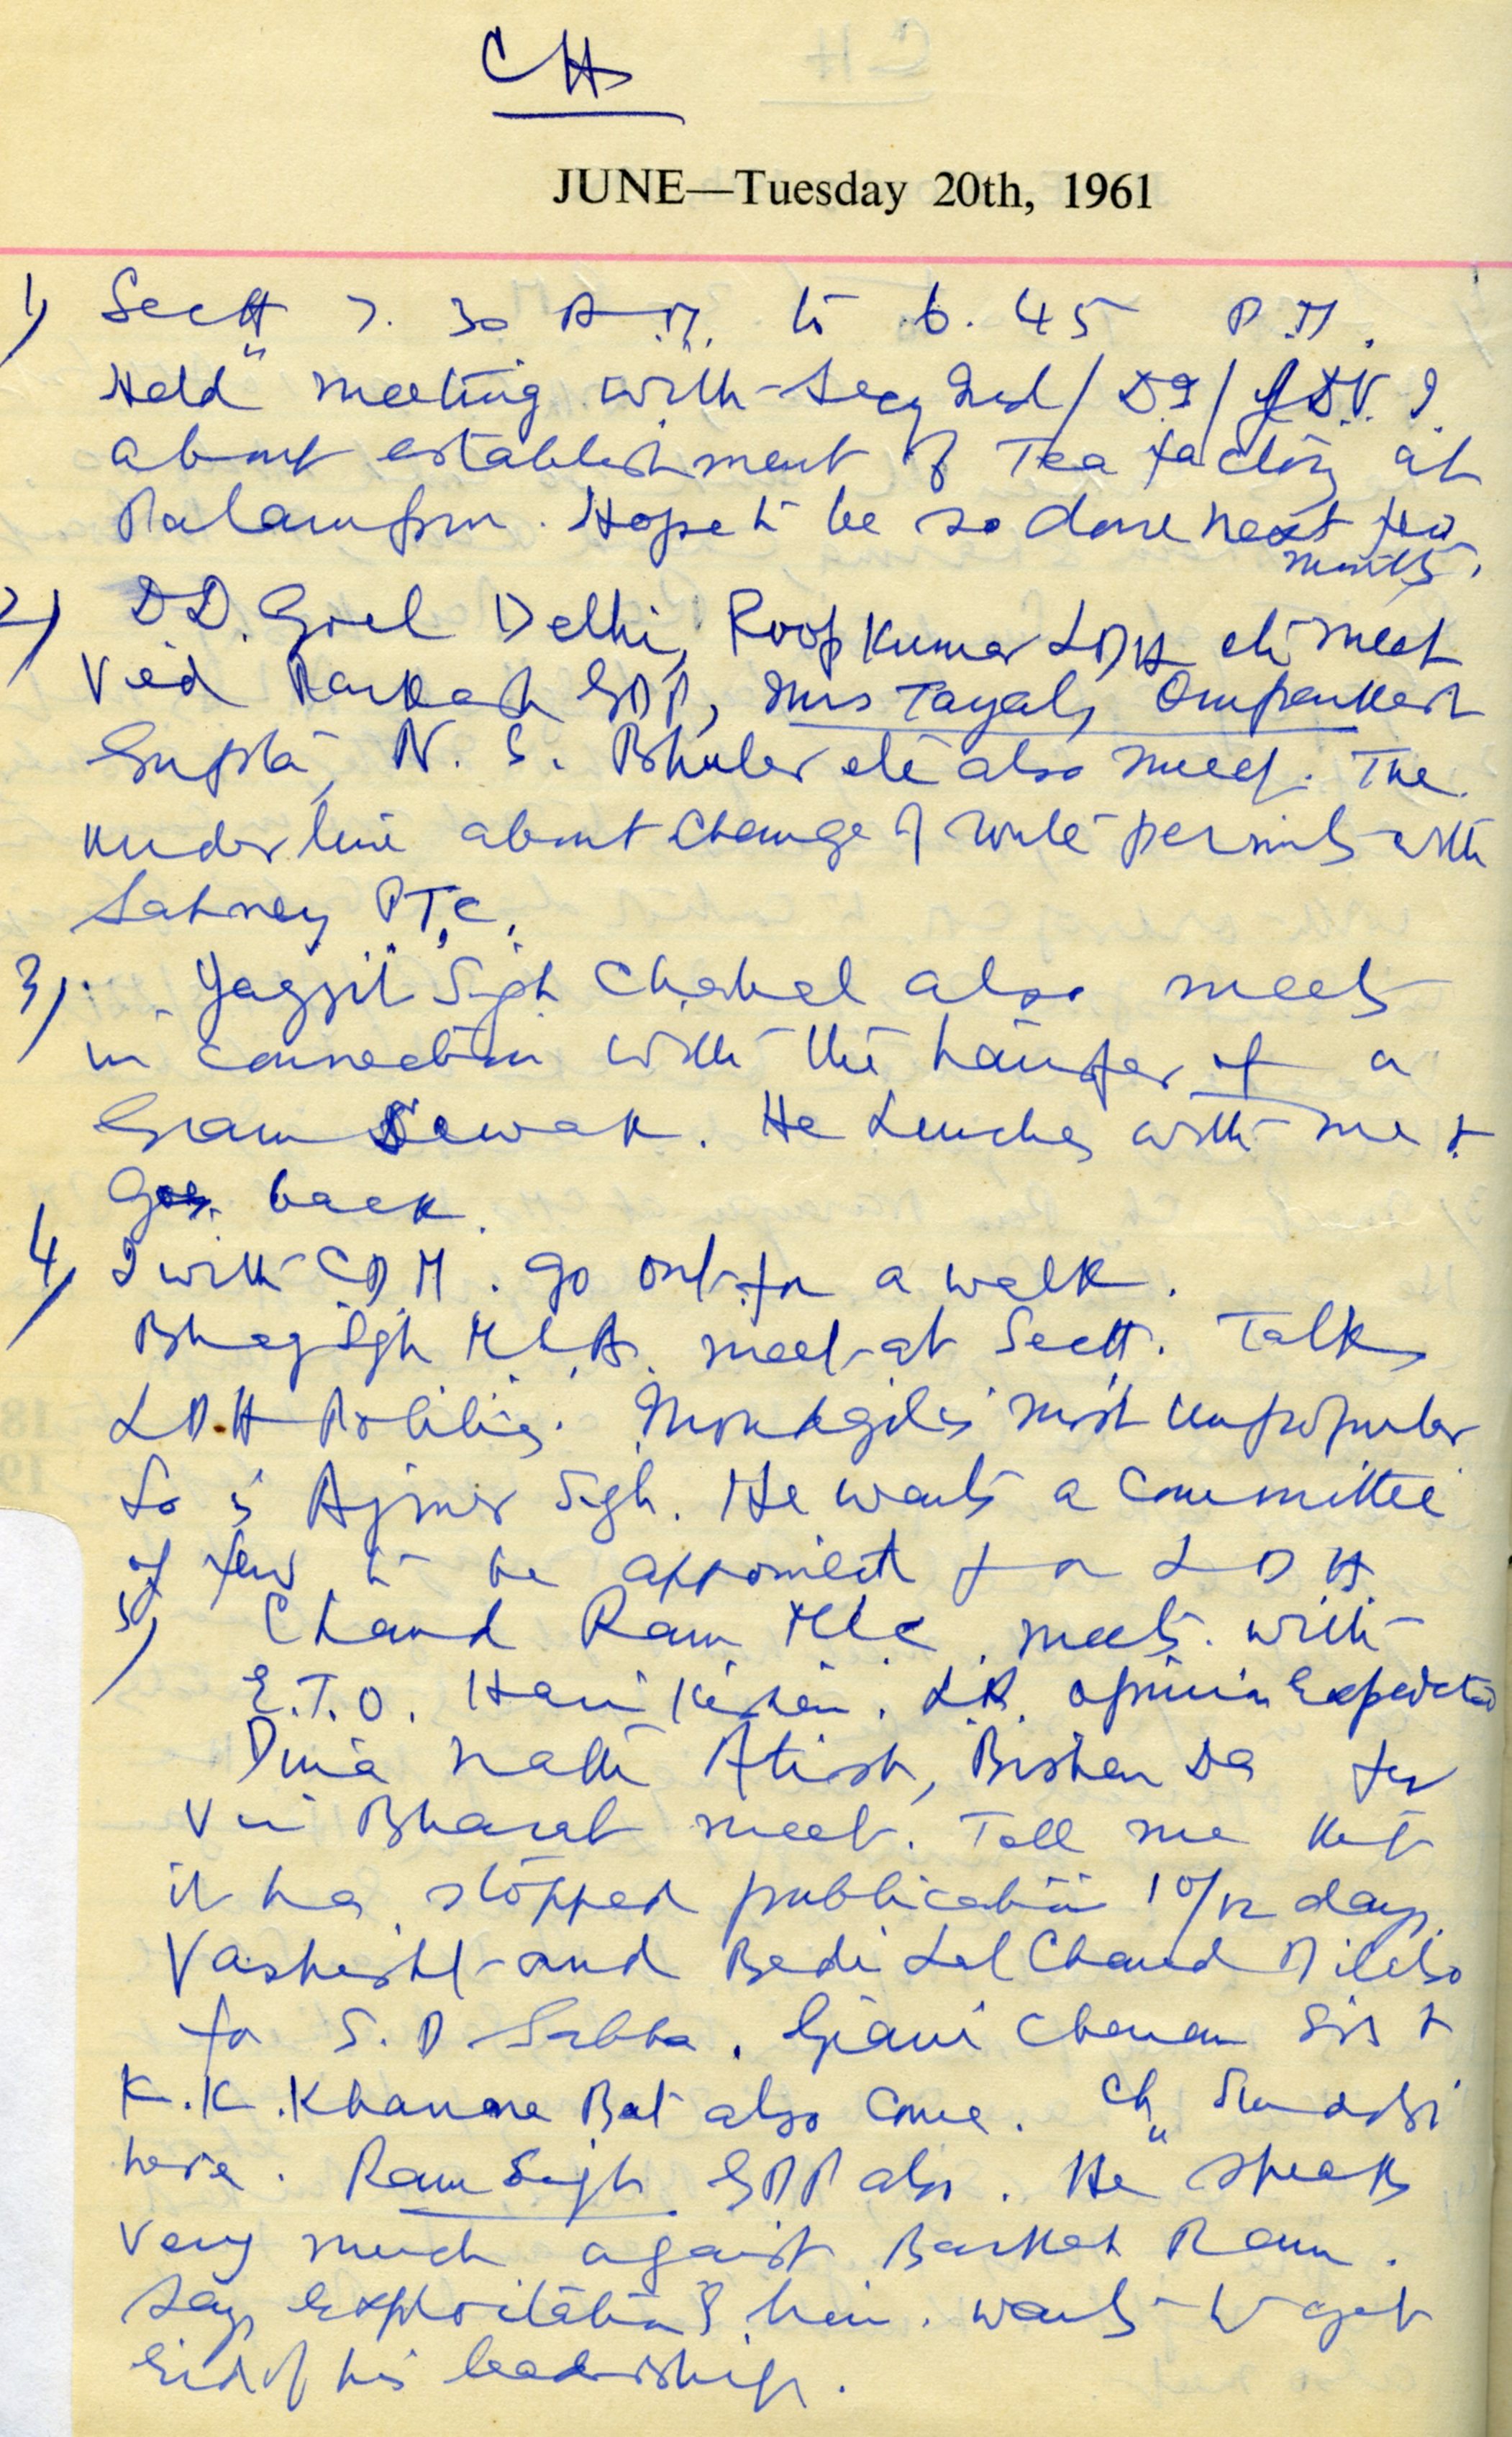 CH
JUNE—Tuesday 20th, 1961
1) Sectt 7.30 A.M. to 6.45 P.M.
Held meeting with Secy Ind/D.I/
about establishment of Tea factory at
Palampur. Hope to be so done next few
months.
2) D.D. Goel Delhi, Roop Kumar LDH etc meet
Ved Parkash GDP, Mrs Tayal, Omparkash
Gupta, N. S. Bhuler etc also meet. The
underline about Change of route permits with
Sahney P.T.C.
3) Jagjit Sigh Chahel also meets
in connection with the transfer of a
Gram Sewak. He Lunches with me &
goes back.
4) I with CDM. go out for a walk.
Bhag Sgh M.L.A. meet at Sectt. Talks
LDH Politics. most unpopular
So is Ajmer Sgh. He wants a Committee
of few to be appointed for LDH
5) Chand Ram MLC meets with
E.T.O. Hari Kishen. L.R. opinion Expedited
Dina Nath Atish, Bishan Da for
Vir Bharat meet. Tell me that
it has stopped publication 10/12 days
Vashisht and Bedi Lal Chand also
for S.D Sabha. Giani Chanan Sis &
K.K. Khanna Bat also Come. Ch
here. Ram Singh GDP also. He speaks
very much against Barkat Ram.
Says Exploitation of him. wants to get
rid of his leadership.